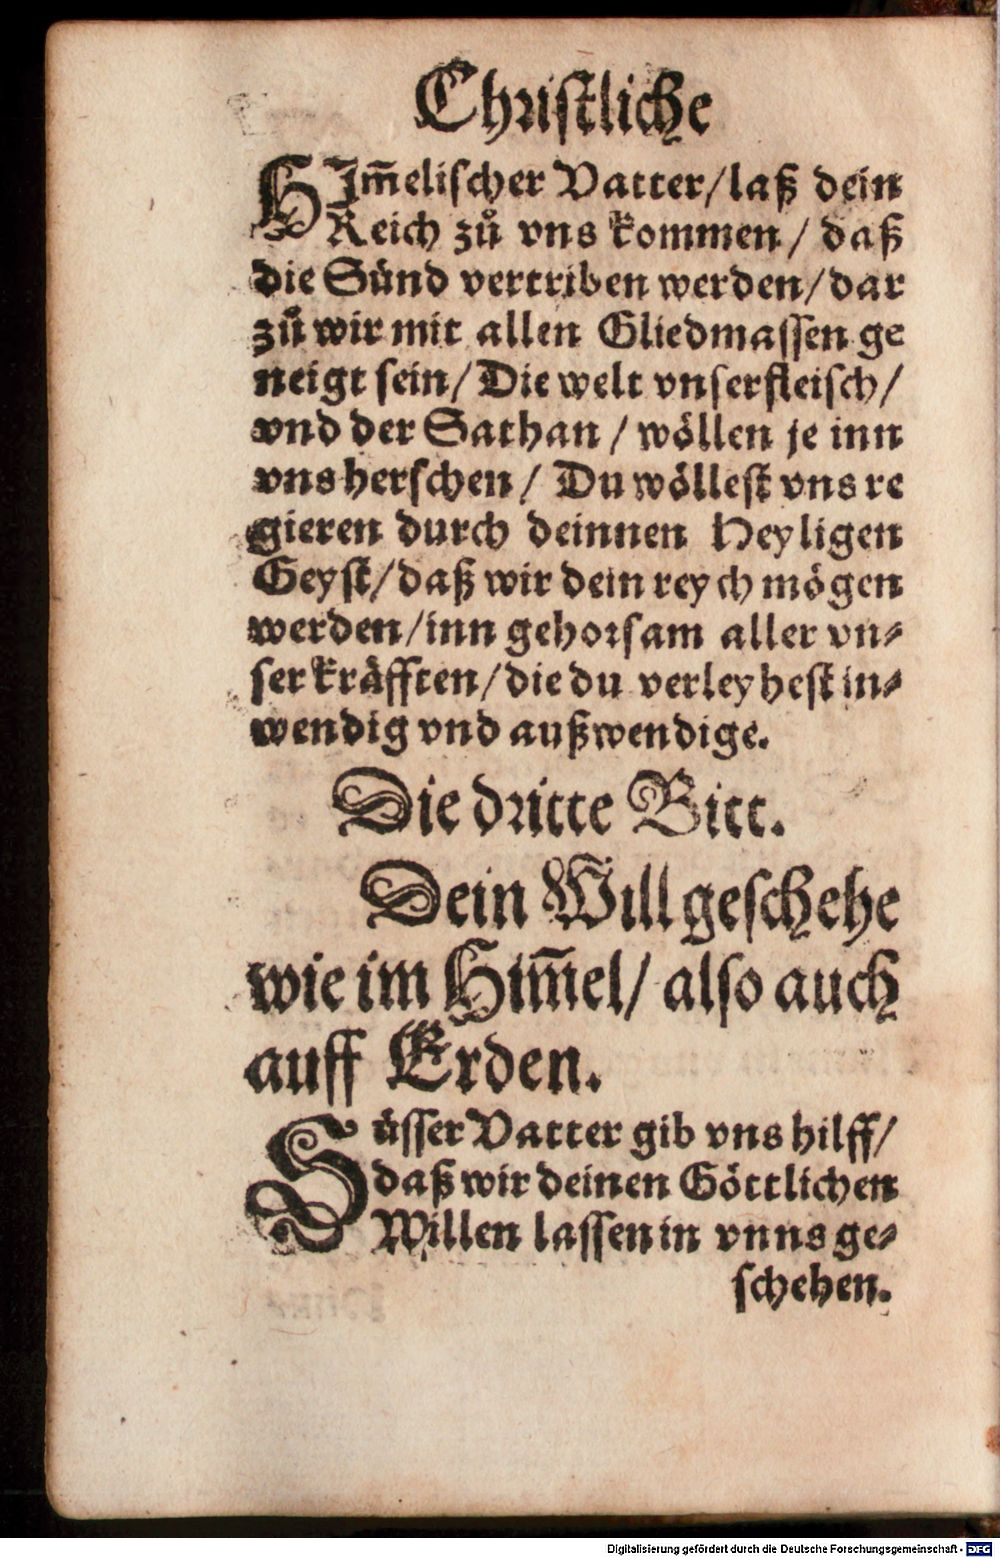 Christliche
HIm̃elischer Vatter/laß dein
Reich zů vns kommen/ daß
die Sünd vertriben werden/dar
zů wir mit allen Gliedmassen ge
neigt sein/Die welt vnser fleisch/
vnd der Sathan/ wöllen je inn
vns herschen/ Du wöllest vns re
gieren durch deinnen Heyligen
Geyst/daß wir dein reych mögen
werden/inn gehorsam aller vn⸗
ser kräfften/die du verleyhest in⸗
wendig vnd außwendige.
Die dritte Bitt.
Dein Will geschehe
wie im Him̃el/ also auch
auff Erden.
Süsser Vatter gib vns hilff/
daß wir deinen Göttlichen
Willen lassen in vnns ge⸗
schehen.
Digitalisierung gefördert durch die Deutsche Forschungsgemeinschaft - DFG